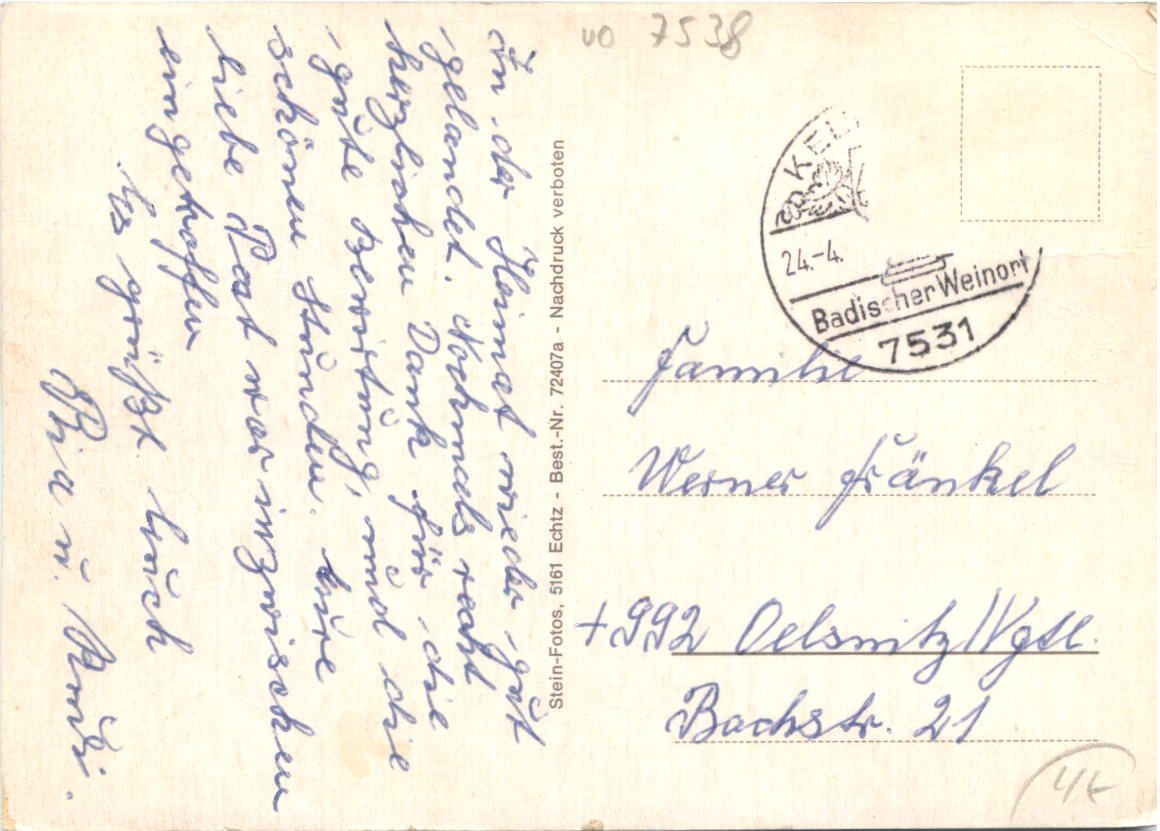 In der Heimat wieder gut
gelandet. Nochmals recht
herzlichen Dank für die
gute Bewirtung, und die
schönen Stunden. Eure
liebe Post war inzwischen
eingetroffen
Es grüßt Euch
Ria u. Rudi.
Stein-Fotos, 5161 Echtz - Best.-Nr. 72407a - Nachdruck verboten
vo 7538
KEL
24.-4.
Badischer Weinort
7531
Familie
Werner Fränkel
+992 Oelsnitz/Vgtl.
Bachstr. 21